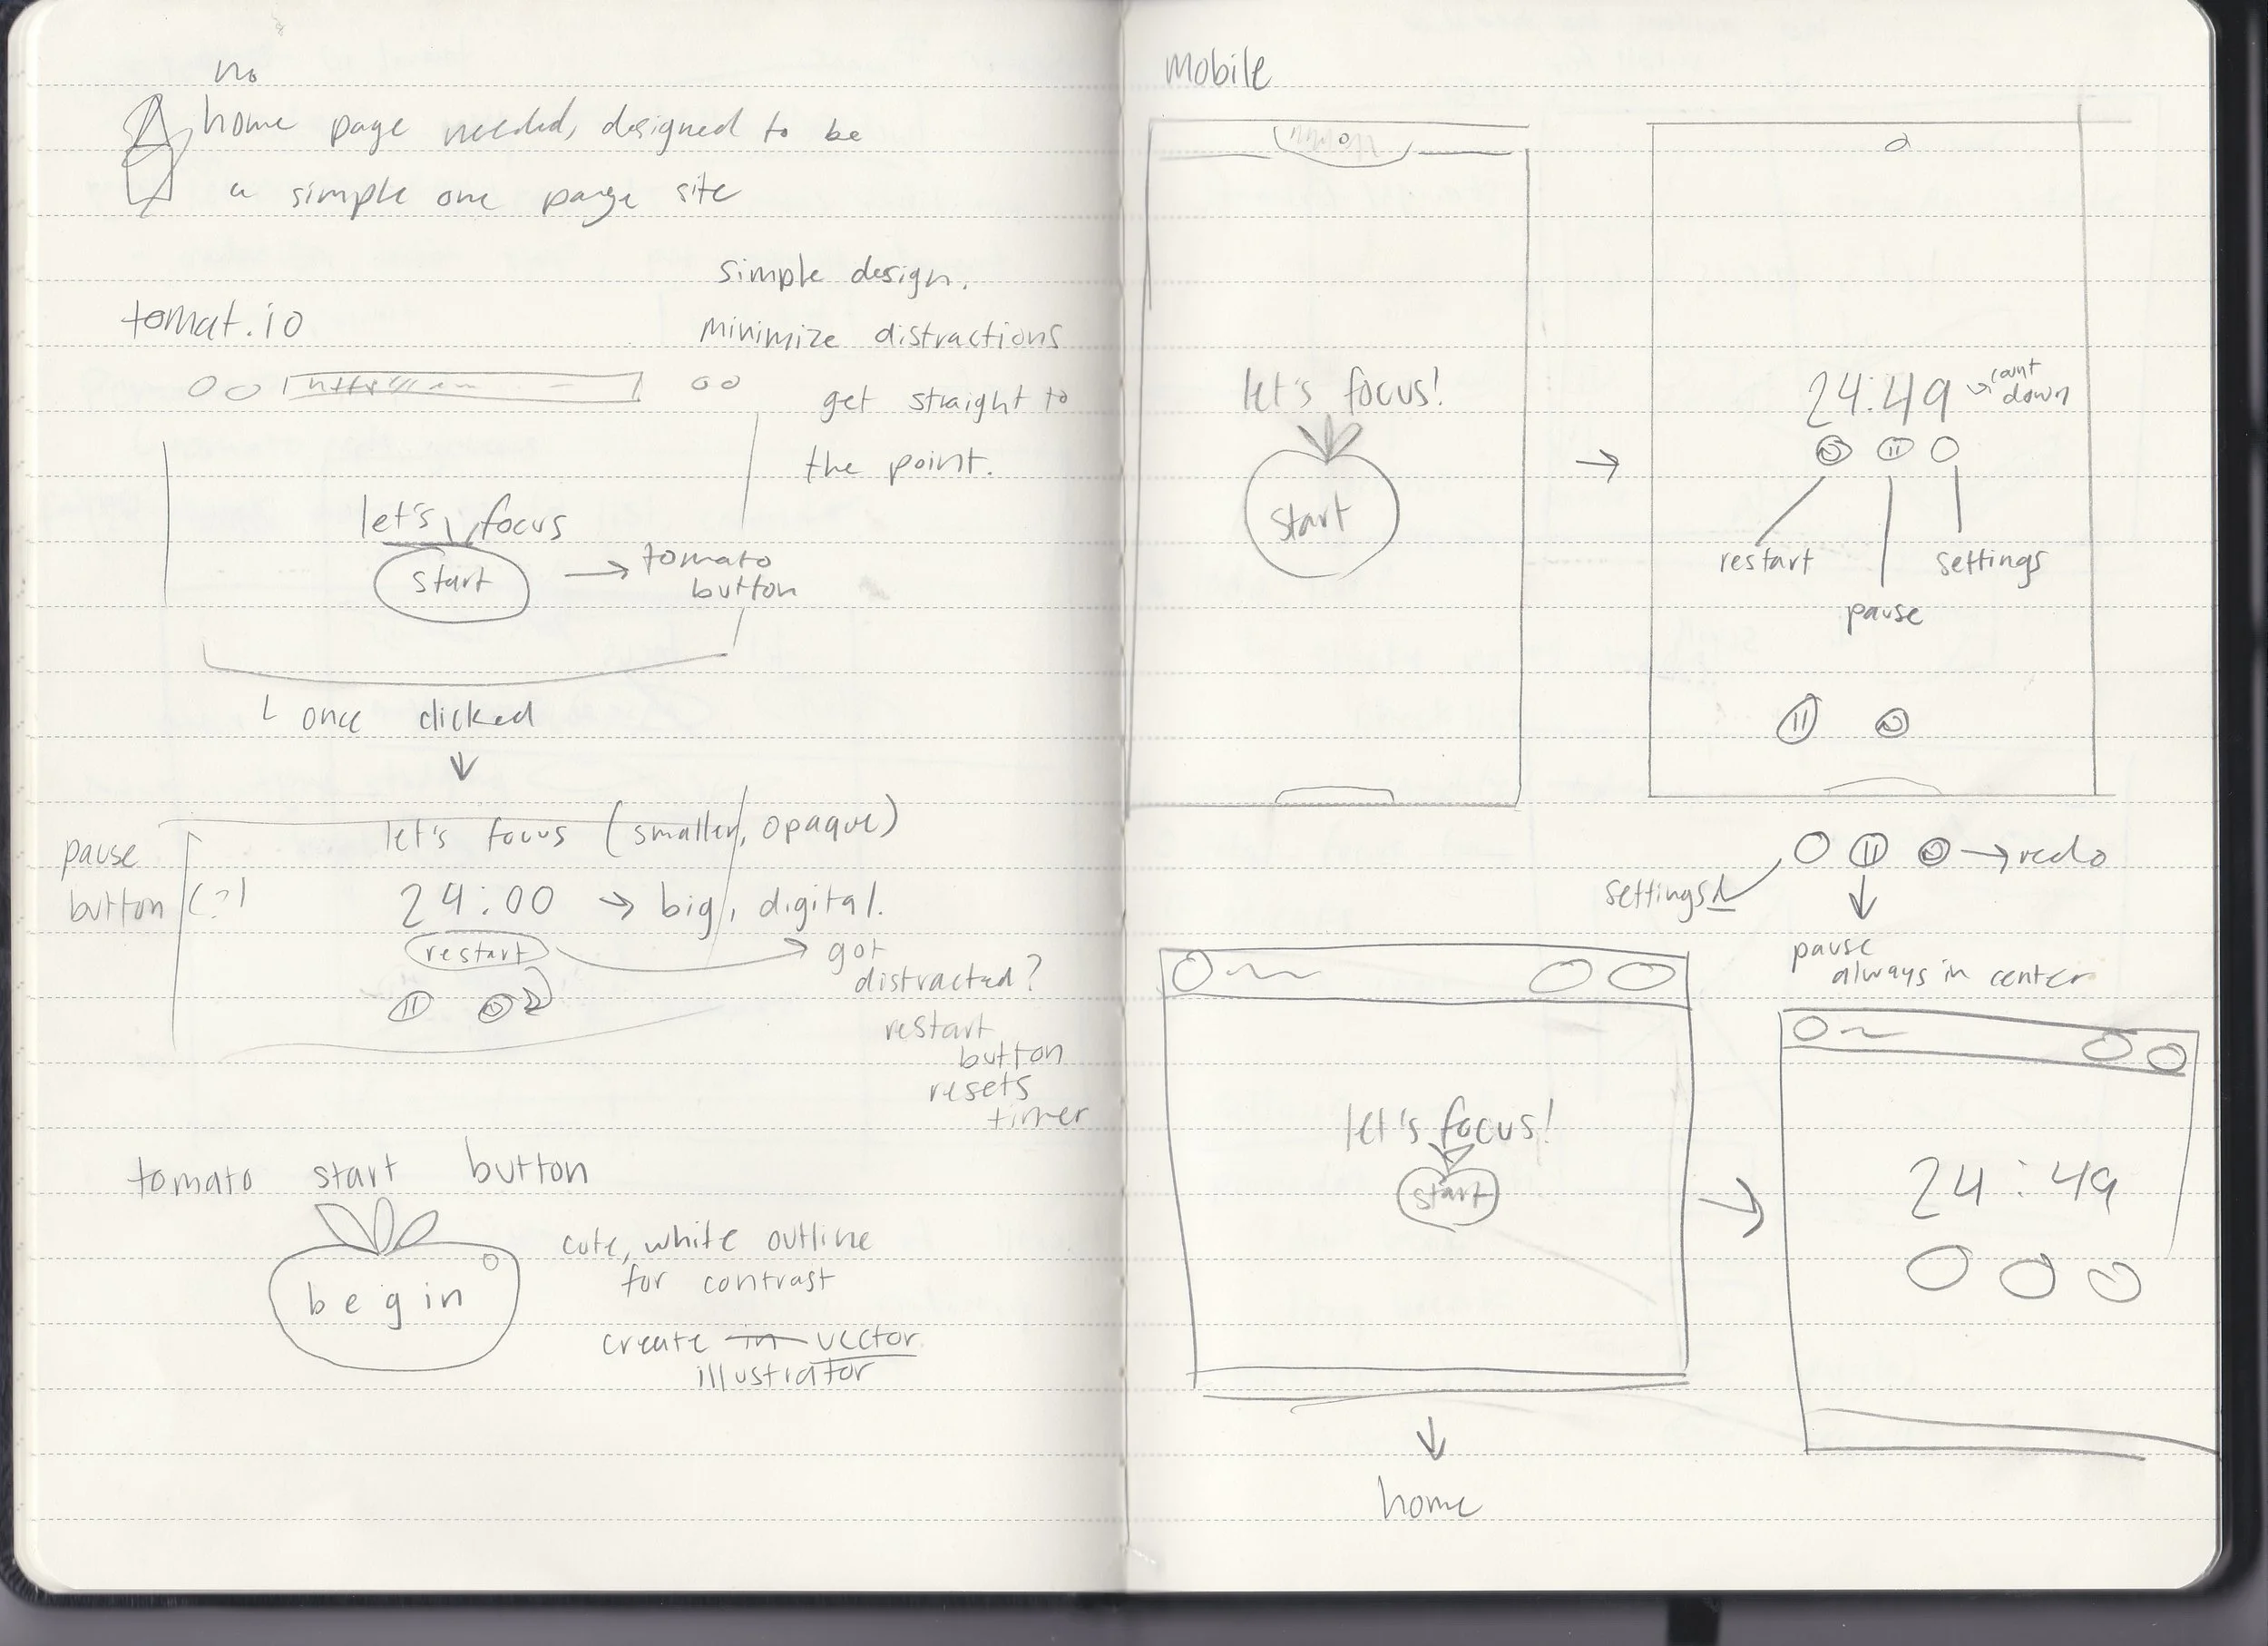 no
home page needed, designed to be
a simple one page site
simple design.
minimize distractions
get straight to
the point.
tomat.io
let's focus
start
tomato
button
once clicked
let's focus (smaller, opaque)
pause
button (?)
24:00 → big, digital.
restart
got
distracted?
restart
button
resets
timer
tomato start button
begin
cute, white outline
for contrast
create in vector
illustrator
mobile
let's focus!
start
24:49
count
down
restart
settings
pause
redo
settings
pause
always in center
let's focus!
start
24:49
home